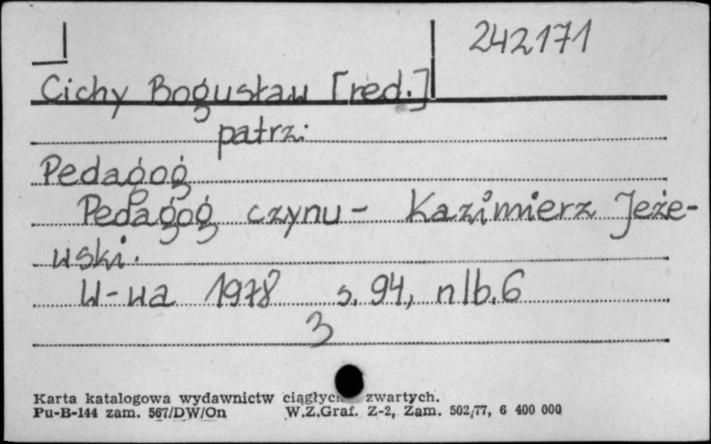 242171
Cichy Bogusław [red.]
patrz:
Pedagog
Pedagog czynu - Kazimierz Jeże-
wski.
W-wa 1978 s. 94, nlb. 6
3
Karta katalogowa wydawnictw zwartych.
Pu-B-144 zam. 567/DW/On W.Z.Graf. Z-2, Zam. 502/77, 6 400 000